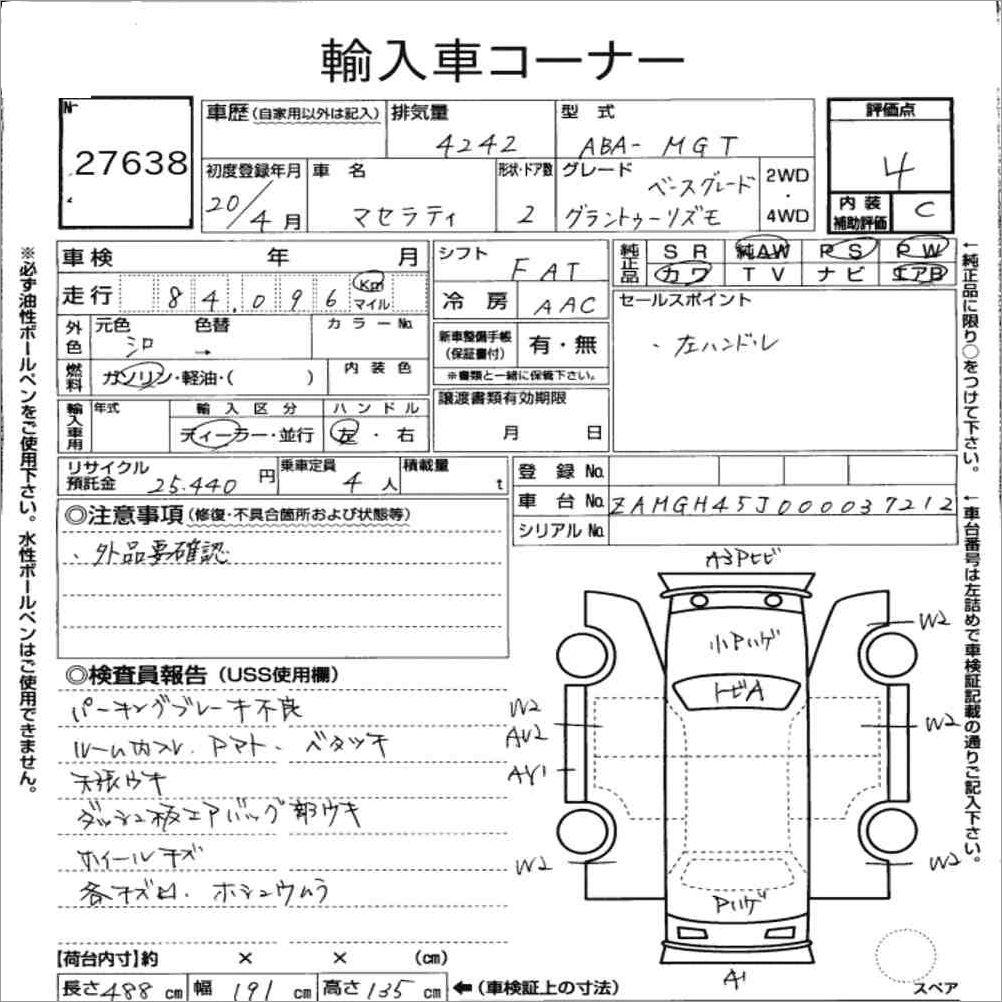 輸入車コーナー
No 27638
車歴(自家用以外は記入) 排気量 4242 型式 ABA-MGT
初度登録年月 20/4月 車名 マセラティ 形状・ドア数 2 グレード ベースグレード グラントゥーリズモ 2WD・4WD
評価点 4
内装補助評価 C
車検 年 月
走行 84,096 Km マイル
外色 元色 シロ 色替 → カラーNo.
燃料 ガソリン・軽油・( ) 内装色
輸入車用 年式 輸入区分 ディーラー・並行 ハンドル 左・右
シフト FAT
冷房 AAC
新車整備手帳(保証書付) 有・無
※書類と一緒に保管下さい。
譲渡書類有効期限 月 日
純正品 SR 純AW PS PW
カワ TV ナビ エアB
セールスポイント
・左ハンドル
リサイクル預託金 25.440円 乗車定員 4人 積載量 t
登録No.
車台No. ZAMGH45J000037212
シリアルNo.
◎注意事項(修復・不具合箇所および状態等)
・外品要確認
◎検査員報告(USS使用欄)
パーキングブレーキ不良
ルーム内スレ、ベタツキ
天張ウキ
ダッシュ板エアバッグ部ウキ
ホイールキズ
各キズ凹、ホシュウムラ
A3Pヒビ
小Pハゲ
トビA
Pハゲ
A1
W2
W2
AU2
AY1
W2
W2
W2
W2
スペア
【荷台内寸】約 × × (cm)
長さ488cm 幅191cm 高さ135cm ←(車検証上の寸法)
※必ず油性ボールペンをご使用下さい。水性ボールペンはご使用できません。
←純正品に限り○をつけて下さい。
←車台番号は左詰めで車検証記載の通りご記入下さい。